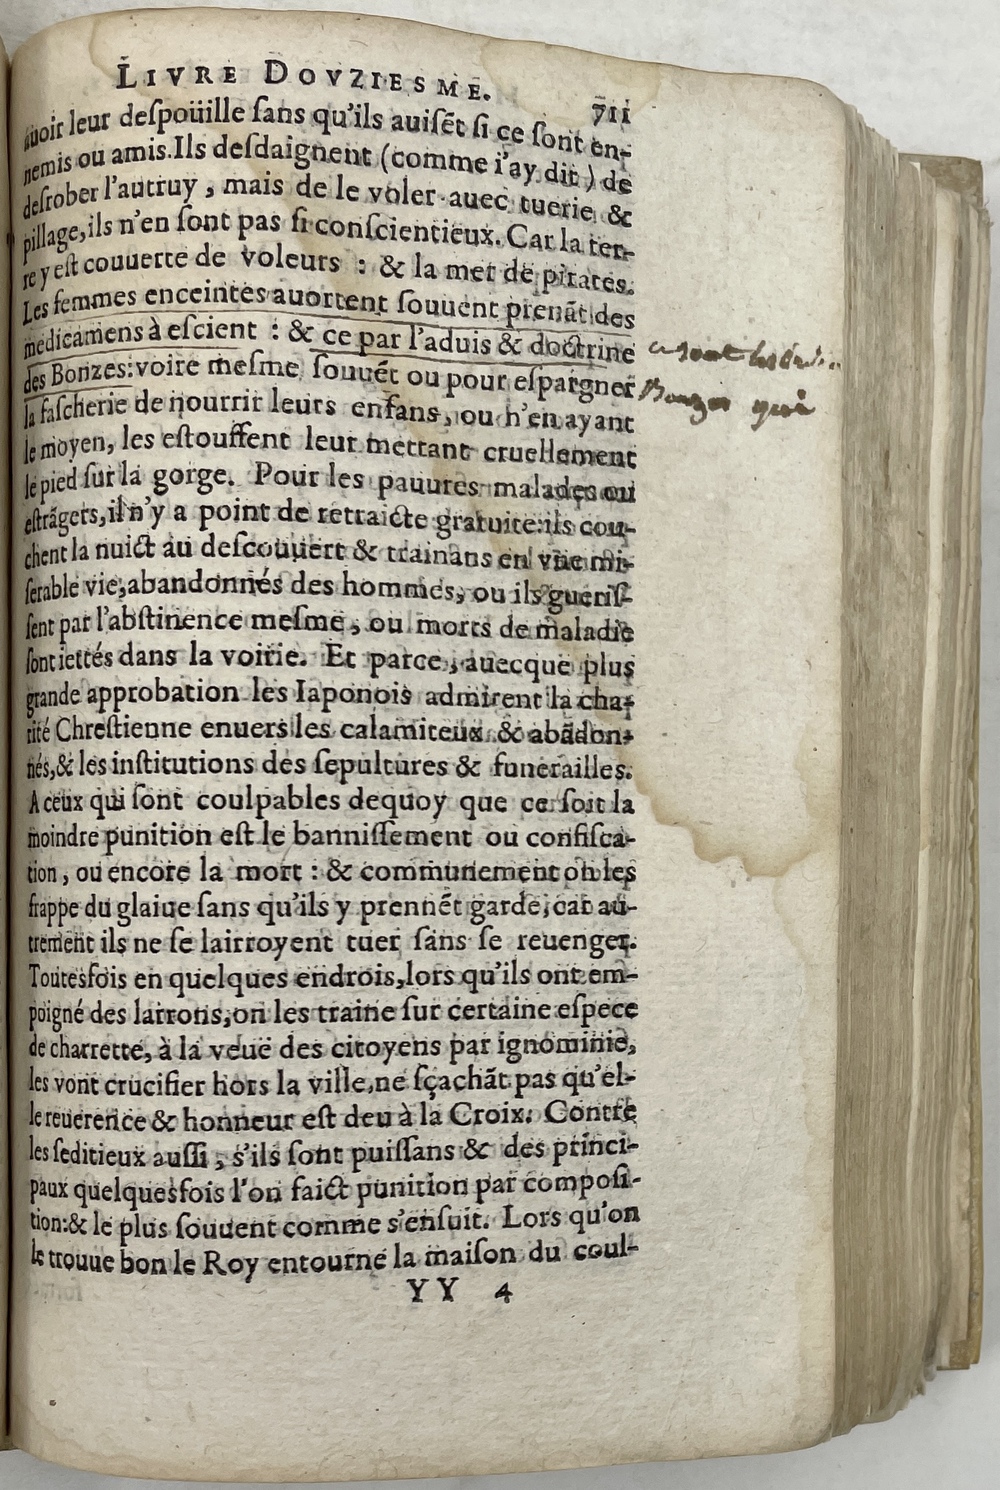 LIVRE DOVZIESME.
711
auoir leur despoüille sans qu'ils auisẽt si ce sont en-
nemis ou amis. Ils desdaignent (comme i'ay dit) de
desrober l'autruy, mais de le voler auec tuerie &
pillage, ils n'en sont pas si conscientieux. Car la ter-
re y est couuerte de voleurs : & la met de pirates.
Les femmes enceintes auortent souuent prenãt des
medicamens à escient : & ce par l'aduis & doctrine
des Bonzes: voire mesme souuẽt ou pour espargner
la fascherie de nourrir leurs enfans, ou n'en ayant
le moyen, les estouffent leur mettant cruellement
le pied sur la gorge. Pour les pauures malades ou
estrãgers, il n'y a point de retraicte gratuite: ils cou-
chent la nuict au descouuert & trainans en vne mi-
serable vie, abandonnés des hommes, ou ils gueris-
sent par l'abstinence mesme, ou morts de maladie
sont iettés dans la voirie. Et parce, auecque plus
grande approbation les Iaponois admirent la cha-
rité Chrestienne enuers les calamiteux & abãdon-
nés, & les institutions des sepultures & funerailles.
A ceux qui sont coulpables dequoy que ce soit la
moindre punition est le bannissement ou confisca-
tion, ou encore la mort : & communement on les
frappe du glaiue sans qu'ils y prennẽt garde, car au-
trement ils ne se lairroyent tuer sans se reuenger.
Toutesfois en quelques endrois, lors qu'ils ont em-
poigné des larrons, on les traine sur certaine espece
de charrette, à la veuë des citoyens par ignominie,
les vont crucifier hors la ville, ne sçachãt pas qu'el-
le reuerence & honneur est deu à la Croix. Contre
les seditieux aussi, s'ils sont puissans & des princi-
paux quelquesfois l'on faict punition par composi-
tion: & le plus souuent comme s'ensuit. Lors qu'on
le trouue bon le Roy entourne la maison du coul-
YY 4
ce sont les
Bonzes qui